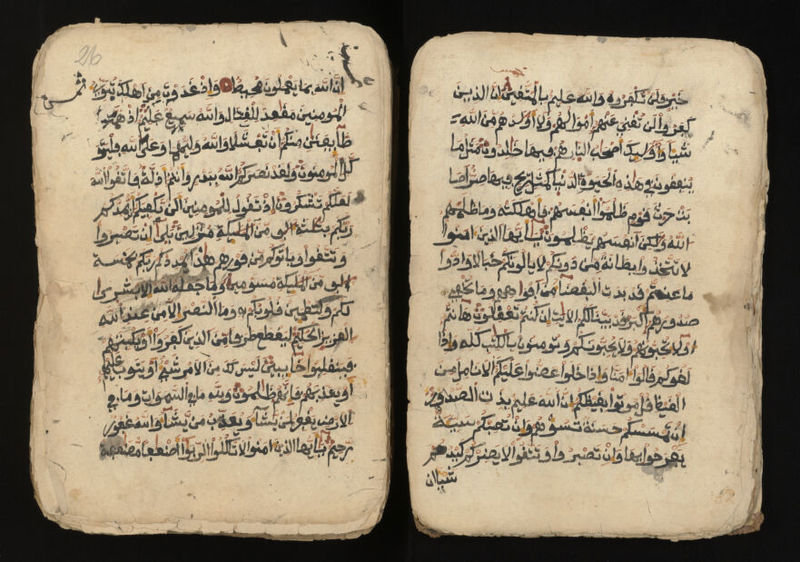 خير فلن تكفروه والله عليم بالمتقين ان الذين
كفروا لن تغني عنهم امولهم ولا اولدهم من الله
شيا واوليك اصحب النار هم فيها خلدون مثل ما
ينفقون في هذه الحيوة الدنيا كمثل ريح فيها صر اصا
بت حرث قوم ظلموا انفسهم فاهلكته وما ظلمهم
الله ولكن انفسهم يظلمون يايها الذين امنوا
لا تتخذوا بطانة من دونكم لا يالونكم خبالا ودوا
ما عنتم قد بدت البغضا من افوههم وما تخفي
صدورهم اكبر قد بينا لكم الايت ان كنتم تعقلون هانتم
اولا تحبونهم ولا يحبونكم وتومنون بالكتب كله واذا
لقوكم قالوا امنا واذا خلوا عضوا عليكم الانامل من
الغيظ قل موتوا بغيظكم ان الله عليم بذت الصدور
ان تمسسكم حسنة تسوهم وان تصبكم سيية
يفرحوا بها وان تصبروا وتتقوا لا يضركم كيدهم
شيا ان
26
ان الله بما يعملون محيط واذ غدوت من اهلك تبوي
المومنين مقعد للقتال والله سميع عليم اذ همت
طايفتن منكم ان تفشلا والله وليهما وعلى الله فليتو
كل المومنون ولقد نصركم الله ببدر وانتم اذلة فاتقوا الله
لعلكم تشكرون اذ تقول للمومنين الن يكفيكم ان يمدكم
ربكم بثلثة الف من المليكة منزلين بلى ان تصبروا
وتتقوا وياتوكم من فورهم هذا يمددكم ربكم بخمسة
الف من المليكة مسومين وما جعله الله الا بشرى
لكم ولتطمين قلوبكم به وما النصر الا من عند الله
العزيز الحكيم ليقطع طرفا من الذين كفروا او يكبتهم
فينقلبوا خايبين ليس لك من الامر شي او يتوب عليهم
او يعذبهم فانهم ظلمون ولله ما في السموت وما في
الارض يغفر لمن يشا ويعذب من يشا والله غفور
رحيم يايها الذين امنوا لا تاكلوا الربوا اضعفا مضعفة